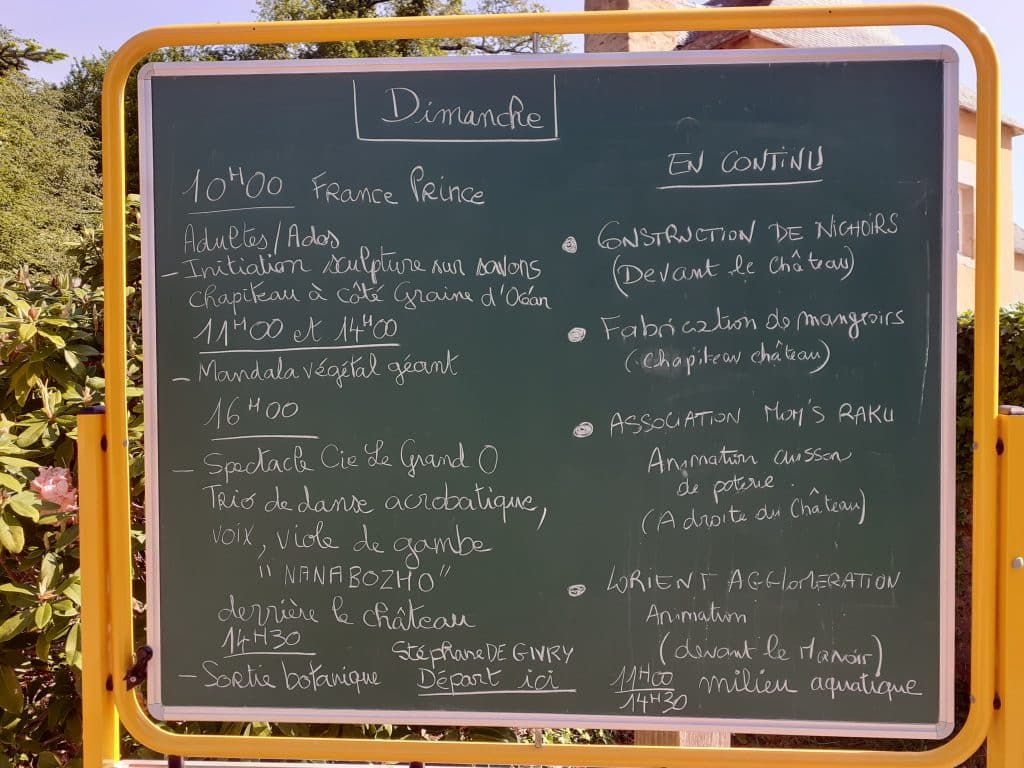 Dimanche
10H00 France Prince
Adultes/Ados
- Initiation sculpture sur savons
chapiteau à côté Graine d'Océan
11H00 et 14H00
- Mandala végétal géant
16H00
- Spectacle Cie Le Grand O
Trio de danse acrobatique,
voix, viole de gambe
"NANABOZHO"
derrière le château
14H30
- Sortie botanique
Stéphane DE GIVRY
Départ ici
EN CONTINU
CONSTRUCTION DE NICHOIRS
(Devant le Château)
Fabrication de mangeoirs
(Chapiteau château)
ASSOCIATION MOM'S RAKU
Animation cuisson
de poterie.
(A droite du Château)
LORIENT AGGLOMERATION
Animation
(devant le Manoir)
11H00 milieu aquatique
14H30